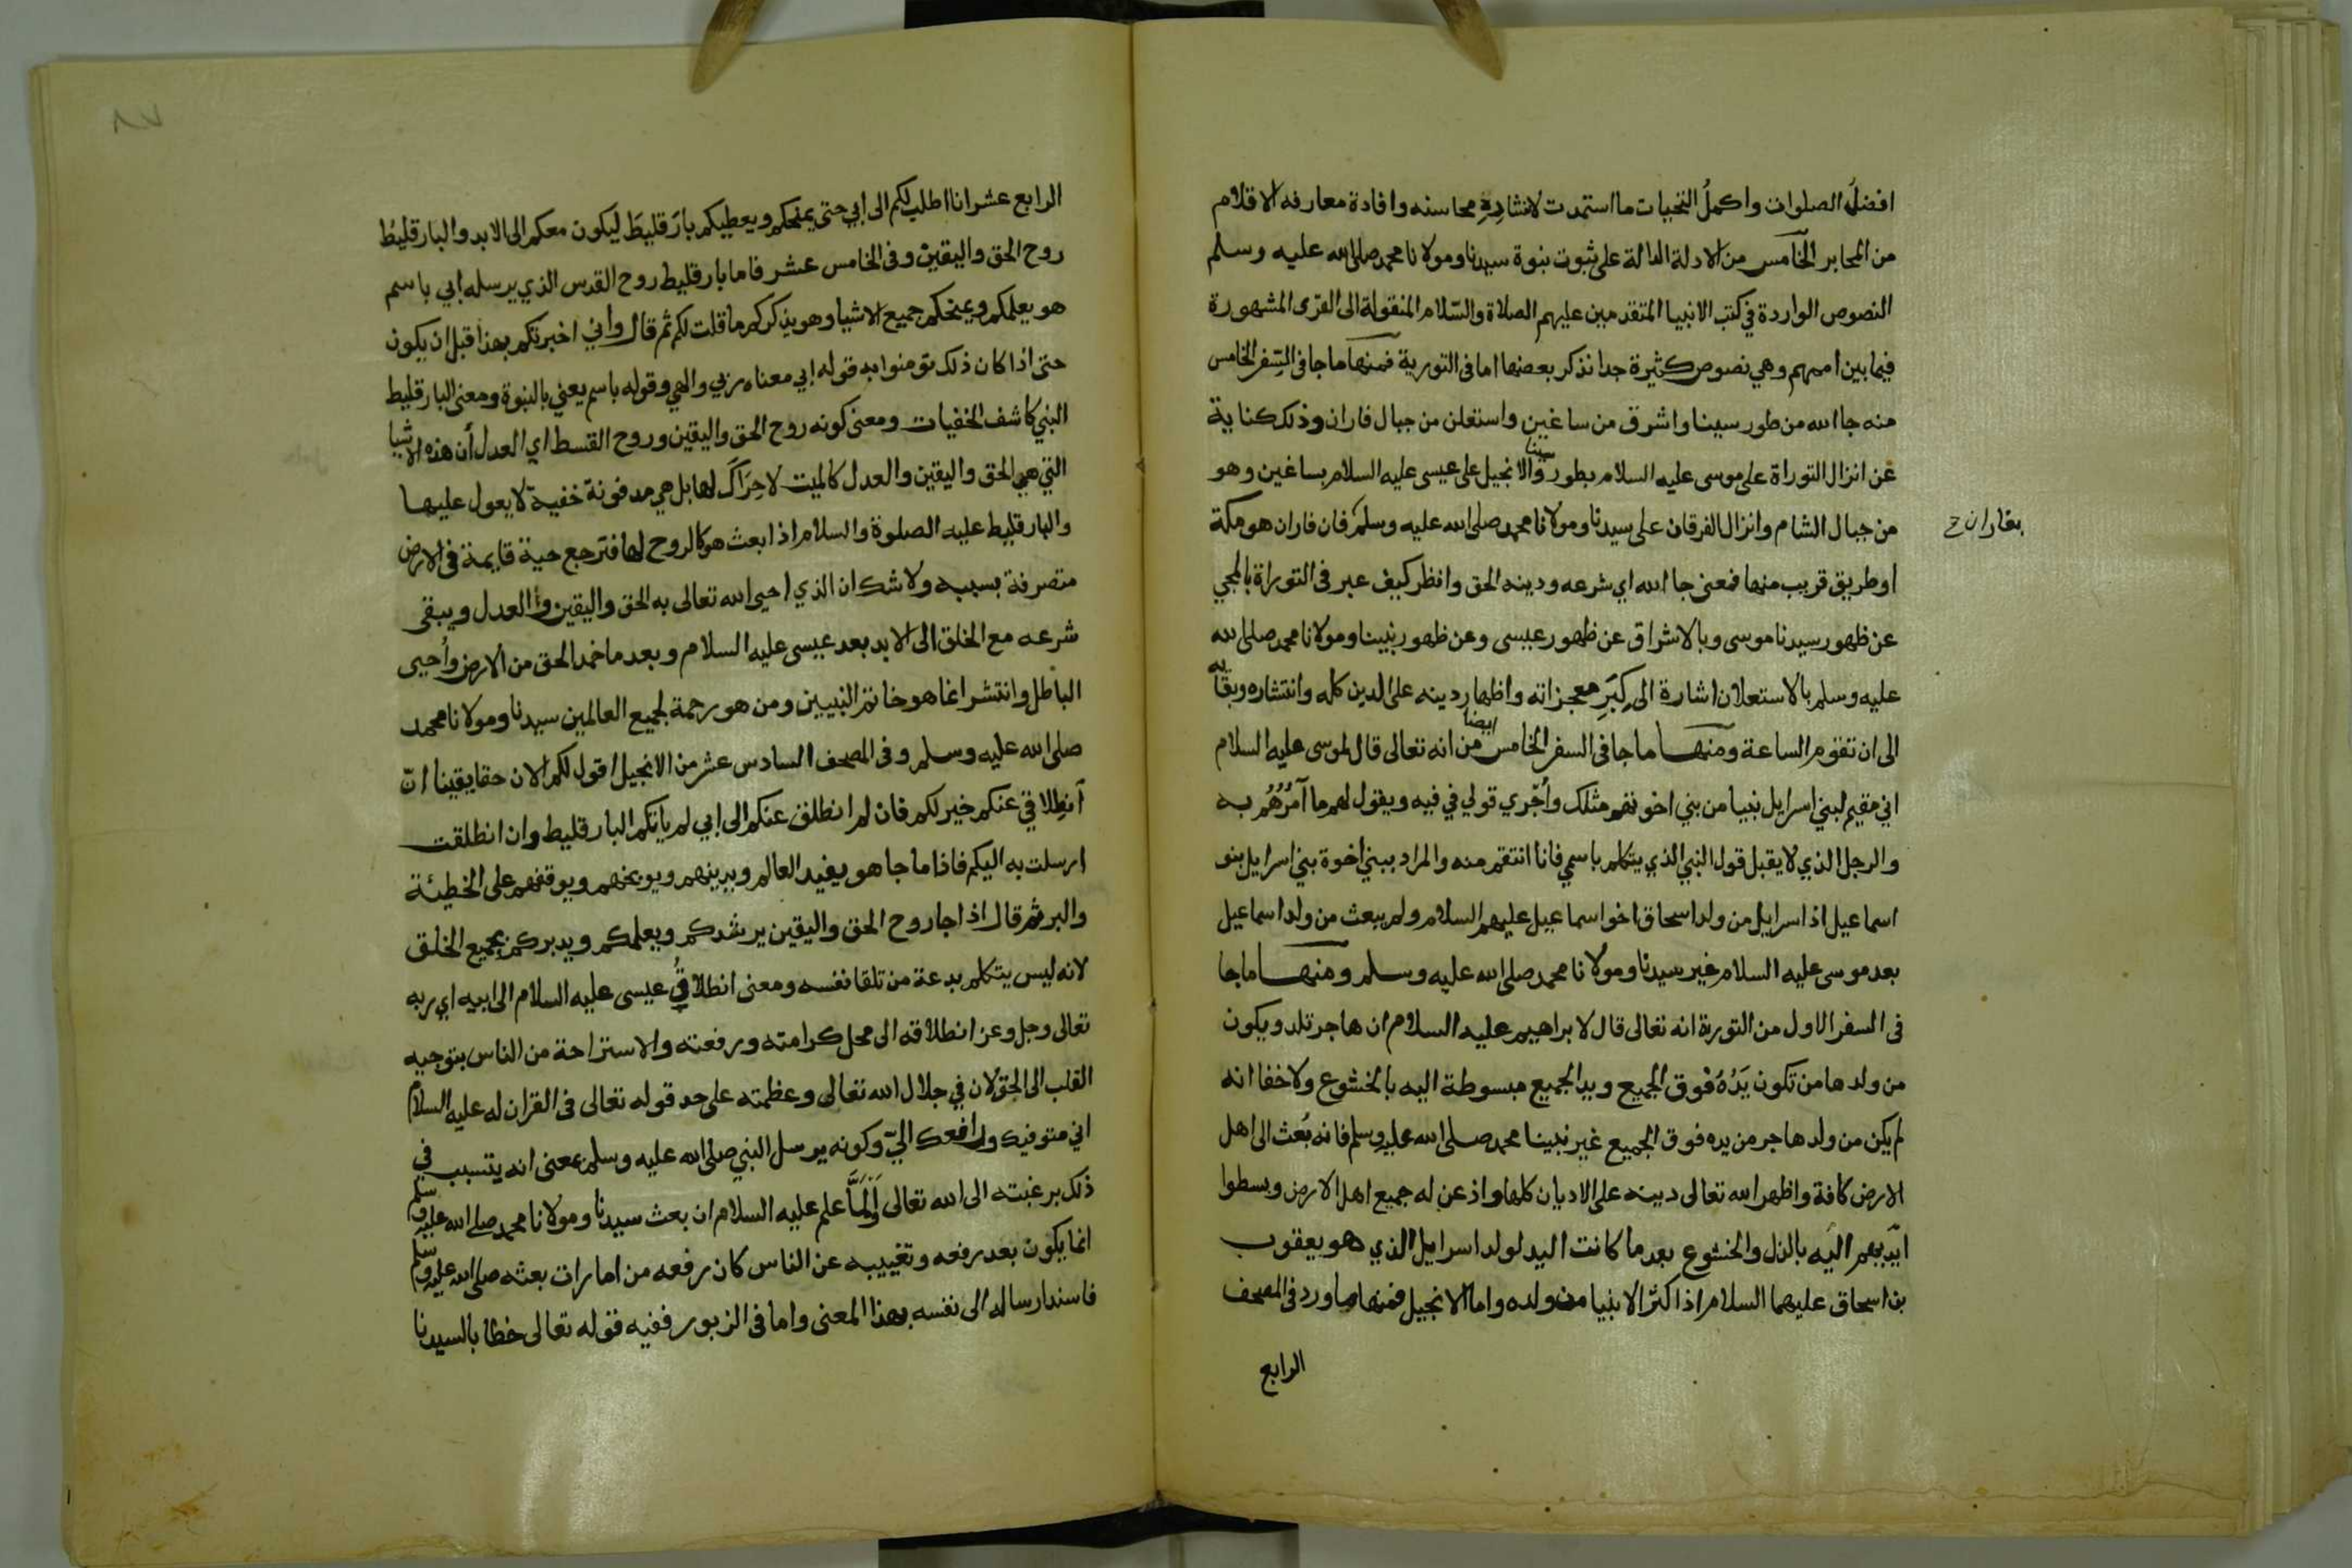 افضلُ الصلوات واكملُ التحيات ما استمدت لانشادِهِ محاسنه وافادة معارفه الاقلام
من المحابر الخامس من الادلة الدالة على ثبوت نبوة سيدنا ومولانا محمد صلى الله عليه وسلم
النصوص الواردة في كتب الانبيا المتقدمين عليهم الصلاة والسّلام المنقولة الى القرى المشهورة
فيما بين اممهم وهي نصوص كثيرة جدا نذكر بعضها اما فى التورية فمنها ما جا فى السِّفر الخامس
منه جا الله من طور سينا واشرق من ساغين واستعلن من جبال فاران وذلك كناية
عن انزال التوراة على موسى عليه السلام بطور سينا والانجيل على عيسى عليه السلام بساغين وهو
من جبال الشام وانزال الفرقان على سيدنا ومولانا محمد صلى الله عليه وسلم فان فاران هو مكة
بفاران ح
او طريق قريب منها فمعنى جا الله اي شرعه ودينه الحق وانظر كيف عبر فى التوراة بالمجي
عن ظهور سيدنا موسى وبالاشراق عن ظهور عيسى وعن ظهور نبينا ومولانا محمد صلى الله
عليه وسلم بالاستعلان اشارة الى كِبَرِ معجزاته واظهار دينه على الدين كله وانتشاره وبقائه
الى ان تقوم الساعة ومنها ما جا فى السفر الخامس ايضا من انه تعالى قال لموسى عليه السلام
اني مقيم لبني اسرايل نبيا من بني اخوتهم مثلك وأُجْري قولي في فيه ويقول لهم ما آمُرُهُم به
والرجل الذي لا يقبل قول النبي الذي يتكلم باسمي فانا انتقم منه والمراد ببني اخوة بني اسرايل بنو
اسماعيل اذ اسرايل من ولد اسحاق اخو اسماعيل عليهم السلام ولم يبعث من ولد اسماعيل
بعد موسى عليه السلام غير سيدنا ومولانا محمد صلى الله عليه وسلم ومنها ما جا
فى السفر الاول من التورية انه تعالى قال لابراهيم عليه السلام ان هاجر تلد ويكون
من ولدها من تكون يَدُهُ فوق الجميع ويد الجميع مبسوطة اليه بالخشوع ولا خفا انه
لم يكن من ولد هاجر من يده فوق الجميع غير نبينا محمد صلى الله عليه وسلم فانه بُعث الى اهل
الارض كافة واظهر الله تعالى دينه على الاديان كلها واذعن له جميع اهل الارض وبسطوا
ايديهم اليه بالذل والخشوع بعد ما كانت اليد لولد اسرايل الذي هو يعقوب
بن اسحاق عليهما السلام اذ اكثر الانبيا من ولده واما الانجيل فمنها ما ورد فى المصحف
الرابع
الرابع عشر انا اطلب لكم الى ابي حتى يمنحكم ويعطيكم بارَقليطَ ليكون معكم الى الابد والبارقليطُ
روح الحق واليقين وفى الخامس عشر فاما بارقليط روح القدس الذي يرسله ابي باسم
هو يعلمكم ويمنحكم جميع الاشيا وهو يذكركم ما قلت لكم ثم قال وأني اخبرتكم بهذا قبل ان يكون
حتى اذا كان ذلك تؤمنوا به قوله ابي معناه ربي والهي وقوله باسم يعني بالنبوة ومعنى البارقليط
النبي كاشف الخفيات ومعنى كونه روح الحق واليقين وروح القسط اي العدل أن هذه الاشيا
التي هي الحق واليقين والعدل كالميت لا حِرَاكَ لها بل هي مدفونة خفية لا يعول عليها
والبارقليط عليه الصلوة والسلام اذا بعث هو كالروح لها فترجع حية قايمة فى الارض
متصرفة بسببه ولا شك ان الذي احيى الله تعالى به الحق واليقين والعدل ويبقى
شرعه مع الخلق الى الابد بعد عيسى عليه السلام وبعد ما خمد الحق من الارض وأُحيى
الباطل وانتشر انما هو خاتم النبيين ومن هو رحمة لجميع العالمين سيدنا ومولانا محمد
صلى الله عليه وسلم وفى المصحف السادس عشر من الانجيل اقول لكم الان حقا يقينا انّ
اَنطِلاقي عنكم خير لكم فان لم انطلق عنكم الى ابي لم ياتكم البارقليط وان انطلقت
ارسلت به اليكم فاذا ما جا هو يفيد العالم ويدينهم ويوبخهم ويوقفهم على الخطيئة
والبر ثم قال اذا جا روح الحق واليقين يرشدكم ويعلمكم ويدبركم بجميع الخلق
لانه ليس يتكلم بدعة من تلقا نفسه ومعنى انطلاقُ عيسى عليه السلام الى ابيه اي ربه
تعالى وجل وعز انطلاقه الى محل كرامته ورفعته والاستراحة من الناس بتوجيه
القلب الى الحق لان في جلال الله تعالى وعظمته على حد قوله تعالى فى القران له عليه السلام
اني متوفيك ورافعك اليّ وكونه يرسل النبي صلى الله عليه وسلم بمعنى انه يتسبب في
ذلك برغبته الى الله تعالى ولَمَّا علم عليه السلام ان بعث سيدنا ومولانا محمد صلى الله عليه وسلم
انما يكون بعد رفعه وتغييبه عن الناس كان رفعه من امارات بعثه صلى الله عليه وسلم
فاسند ارساله الى نفسه بهذا المعنى واما فى الزبور ففيه قوله تعالى خطابا لسيدنا